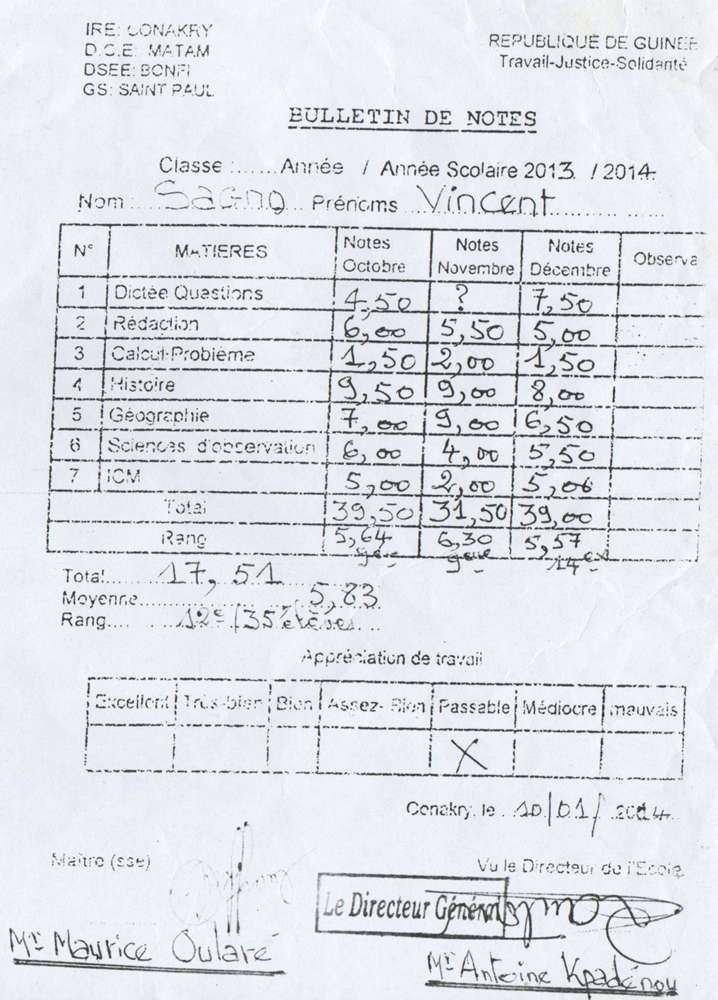 IRE: CONAKRY
D.C.E: MATAM
DSEE: BONFI
GS: SAINT PAUL
REPUBLIQUE DE GUINEE
Travail-Justice-Solidarité
BULLETIN DE NOTES
Classe :...... Année / Année Scolaire 2013 / 2014
Nom : Sagno Prénoms Vincent
N° MATIERES Notes Octobre Notes Novembre Notes Décembre Observa
1 Dictée Questions 4,50 ? 7,50
2 Rédaction 6,00 5,50 5,00
3 Calcul-Problème 1,50 2,00 1,50
4 Histoire 9,50 9,00 8,00
5 Géographie 7,00 9,00 6,50
6 Sciences d'observation 6,00 4,00 5,50
7 ICM 5,00 2,00 5,00
Total 39,50 31,50 39,00
Rang 5,64 6,30 5,57
9ème 9ème 14ex
Total...... 17,51
Moyenne............ 5,83
Rang.... 12e/35 élèves
Appréciation de travail
Excellent Très-bien Bien Assez-Bien Passable Médiocre mauvais
X
Conakry, le 10/01/2014
Maître (sse)
Vu le Directeur de l'Ecole
Le Directeur Général
Mr Maurice Oularé
Mr Antoine Kpadénou